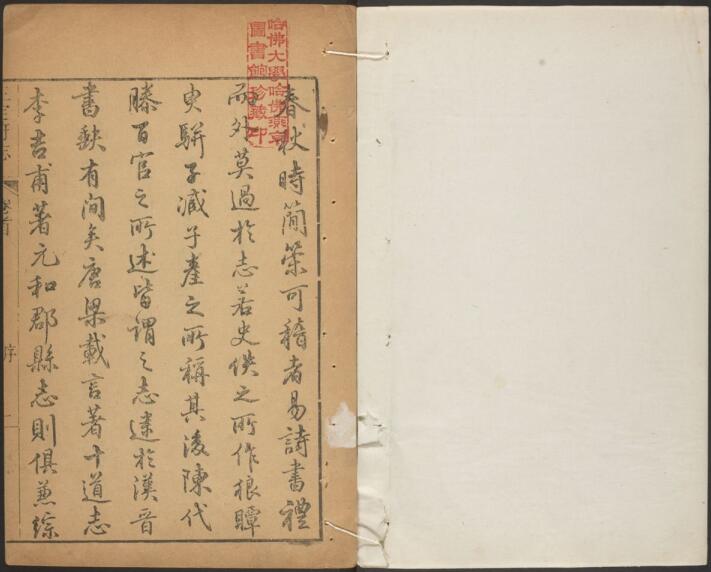 春秋時簡策可稽者易詩書禮
而外莫過於志若史佚之所作狼瞫
史駢子臧子產之所稱其後陳代
滕百官之所述皆謂之志逮於漢晉
書缺有間矣唐梁載言著十道志
李吉甫著元和郡縣志則俱兼綜
府志
卷首
序
一
哈佛大學哈佛燕京
圖書館珍藏印